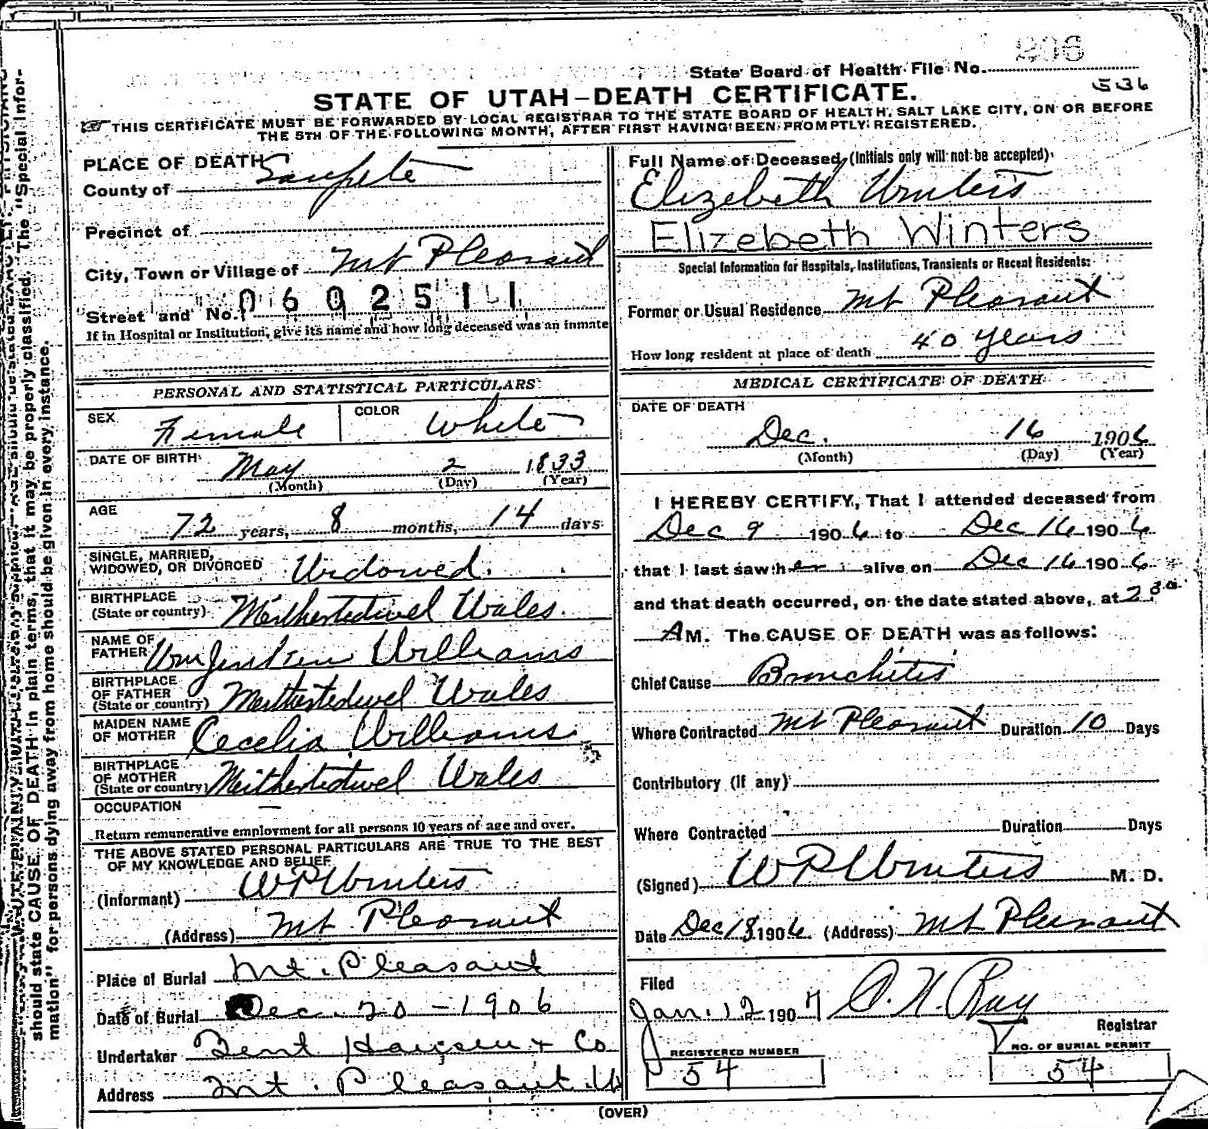 206
State Board of Health File No.
536
STATE OF UTAH—DEATH CERTIFICATE.
THIS CERTIFICATE MUST BE FORWARDED BY LOCAL REGISTRAR TO THE STATE BOARD OF HEALTH, SALT LAKE CITY, ON OR BEFORE
THE 5TH OF THE FOLLOWING MONTH, AFTER FIRST HAVING BEEN PROMPTLY REGISTERED.
PLACE OF DEATH
County of Sanpete
Precinct of
City, Town or Village of Mt Pleasant
Street and No. 060251 1
If in Hospital or Institution, give its name and how long deceased was an inmate
PERSONAL AND STATISTICAL PARTICULARS
SEX Female COLOR White
DATE OF BIRTH May 2 1833
(Month) (Day) (Year)
AGE 72 years, 8 months, 14 days
SINGLE, MARRIED,
WIDOWED, OR DIVORCED Widowed.
BIRTHPLACE
(State or country) Meithertedwel Wales.
NAME OF
FATHER Wm Jenkin Williams
BIRTHPLACE
OF FATHER
(State or country) Meithertedwel Wales
MAIDEN NAME
OF MOTHER Cecelia Williams
BIRTHPLACE
OF MOTHER
(State or country) Meithertedwel Wales
OCCUPATION —
Return remunerative employment for all persons 10 years of age and over.
THE ABOVE STATED PERSONAL PARTICULARS ARE TRUE TO THE BEST
OF MY KNOWLEDGE AND BELIEF
(Informant) WP Winters
(Address) Mt Pleasant
Place of Burial Mt. Pleasant
Date of Burial Dec. 20 - 1906
Undertaker Bent Hansen & Co
Address Mt. Pleasant Ut
Full Name of Deceased (Initials only will not be accepted).
Elizebeth Winters
Elizebeth Winters
Special Information for Hospitals, Institutions, Transients or Recent Residents:
Former or Usual Residence Mt Pleasant
How long resident at place of death 40 years
MEDICAL CERTIFICATE OF DEATH
DATE OF DEATH
Dec. 16 1906
(Month) (Day) (Year)
I HEREBY CERTIFY, That I attended deceased from
Dec 9 1906 to Dec 16 1906
that I last saw her alive on Dec 16 1906
and that death occurred, on the date stated above, at 2 30
AM. The CAUSE OF DEATH was as follows:
Chief Cause Bronchitis
Where Contracted Mt Pleasant Duration 10 Days
Contributory (if any)
Where Contracted Duration Days
(Signed) WP Winters M. D.
Date Dec 18 1906 (Address) Mt Pleasant
Filed
Jan. 12 1907 A. N. Ray
Registrar
REGISTERED NUMBER
54
NO. OF BURIAL PERMIT
54
(OVER)
should state CAUSE OF DEATH in plain terms, that it may be properly classified. The "Special Infor-
mation" for persons dying away from home should be given in every instance.